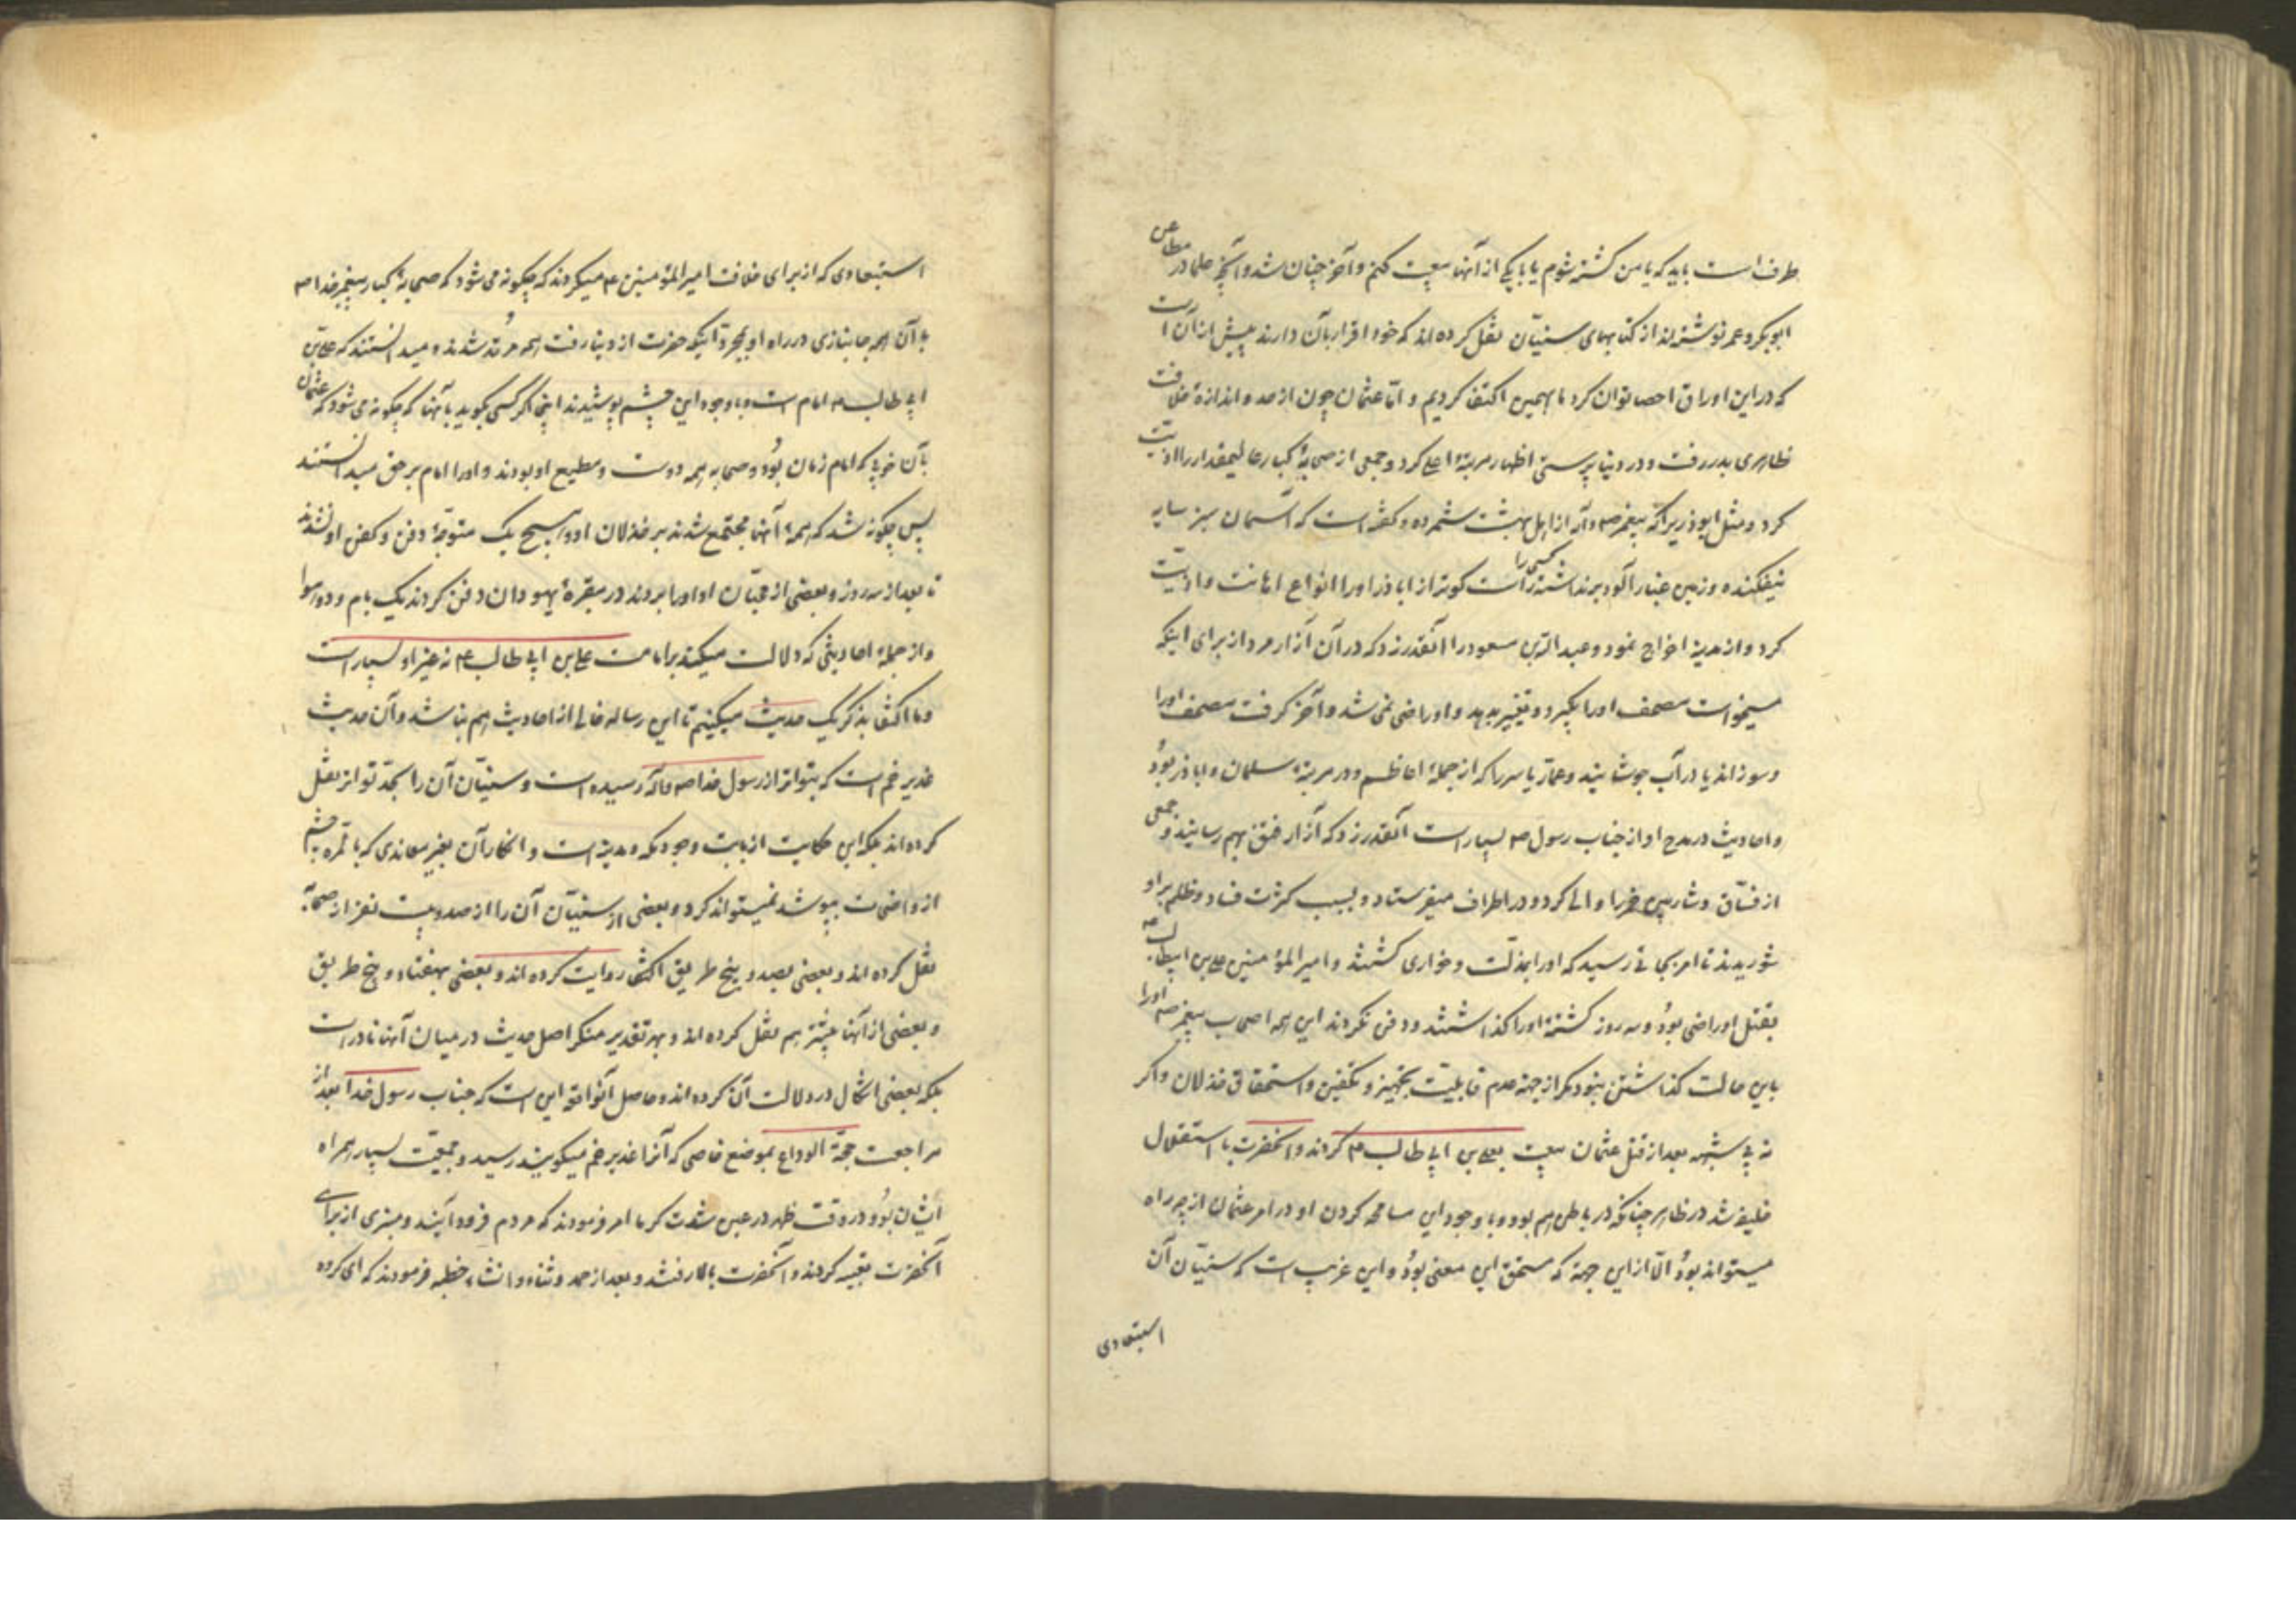 طرف است باید که یا من کشته شوم یا با یکی از آنها بیعت کنم و آخر چنان شد و آنچه علما در مطاعن
ابوبکر و عمر نوشته‌اند از کتابهای سنیّان نقل کرده‌اند که خود اقرار بآن دارند بیش از آن است
که در این اوراق احصا توان کرد ما بهمین اکتفا کردیم و امّا عثمان چون از حد و اندازهٔ خلافت
ظاهری بدر رفت و در دنیا پرستی اظهار مرتبهٔ اعلی کرد و جمعی از صحابهٔ کبار عالیمقدار را اذیّت
کرد و مثل ابوذریرا که پیغمبر ص و آله از اهل بهشت شمرده و گفته است که آسمان سبز سایه
نیفکنده و زمین غبارآلود برنداشته کسی را راست گوتر از اباذر او را انواع اهانت و اذیّت
کرد و از مدینه اخراج نمود و عبد الله بن مسعود را آنقدر زد که در آن آزار مرد از برای اینکه
میخواست مصحف او را بگیرد و تغییر بدهد و او راضی نمی شد و آخر گرفت مصحف او را
و سوزاند یا در آب جوشانید و عمّار یاسر را که از جملهٔ اعاظم و در مرتبهٔ سلمان و اباذر بوُد
و احادیث در مدح او از جناب رسول ص بسیار است آنقدر زد که آزار فتق بهم رسانید و جمعی
از فسّاق و شاربین خمر را والی کرد و در اطراف میفرستاد و بسبب کثرت فساد و ظلم بر او
شوریدند تا امر بجائی رسید که او را بمذلّت و خواری کشتند و امیر المؤمنین علی بن ابیطالب ع
بقتل او راضی بوُد و سه روز کشتهٔ او را گذاشتند و دفن نکردند این همه اصحاب پیغمبر ص او را
باین حالت گذاشتن نبود مگر از جهة عدم قابلیّت تجهیز و تکفین و استحقاق خذلان و اگر
نه بی شبهه بعد از قتل عثمان بیعت بعلی بن ابی طالب ع کردند و آنحضرت باستقلال
خلیفه شد در ظاهر چنانکه در باطن هم بود و با وجود این مسامحه کردن او در امر عثمان از چه راه
میتواند بوُد الّا از این جهة که مستحق این معنی بوُد و این غریب است که سنیّان آن
استبعادی
استبعادی که از برای خلافت امیر المؤمنین ع میکردند که چگونه می شود که صحابهٔ کبار پیغمبر خدا ص
با آن همه جانبازی در راه او بمجرّد اینکه حضرت از دنیا رفت همه مرُتد شدند و میدانستند که علی بن
ابی طالب ع امام است و با وجود این چشم پوشیدند اینجا اگر کسی بگوید بآنها که چگونه می شود که عثمان
بآن خوبی که امام زمان بوُد و صحابه همه دوست و مطیع او بودند و او را امام بر حق میدانستند
پس چگونه شد که همهٔ آنها مجتمع شدند بر خذلان او و هیچ یک متوجّهٔ دفن و کفن او نشدند
تا بعد از سه روز و بعضی از محبّان او او را بردند در مقبرهٔ یهودان دفن کردند یک بام و دو هوا
و از جملهٔ احادیثی که دلالت میکند بر امامت علی بن ابی طالب ع نه غیر او بسیار است
و ما اکتفا بذکر یک حدیث میکنیم تا این رساله خالی از احادیث هم نباشد و آن حدیث
غدیر خم است که بتواتر از رسول خدا ص و آله رسیده است و سنیّان آن را بحدّ تواتر نقل
کرده‌اند بلکه این حکایت از بابت وجود مکه و مدینه است و انکار آن بغیر معاندی که بالمرّه چشم
از واضحات بپوشد نمیتواند کرد و بعضی از سنیّان آن را از صد و بیست نفر از صحابه
نقل کرده‌اند و بعضی بصد و پنج طریق اکتفا روایت کرده‌اند و بعضی بهفتاد و پنج طریق
و بعضی از آنها بیشتر هم نقل کرده‌اند و بهر تقدیر منکر اصل حدیث در میان آنها نادر است
بلکه بعضی اشکال در دلالت آن کرده‌اند و حاصل آنواقعه این است که جناب رسول خدا بعد از
مراجعت حجّة الوداع بموضع خاصی که آنرا غدیر خم میگویند رسید و جمعیّت بسیار همراه
ایشان بوُد و در وقت ظهر در عین شدت گرما امر فرمودند که مردم فرود آیند و منبری از برای
آنحضرت تعبیه کردند و آنحضرت بالا رفتند و بعد از حمد و ثناء و انشاء خطبه فرمودند که ای گروه